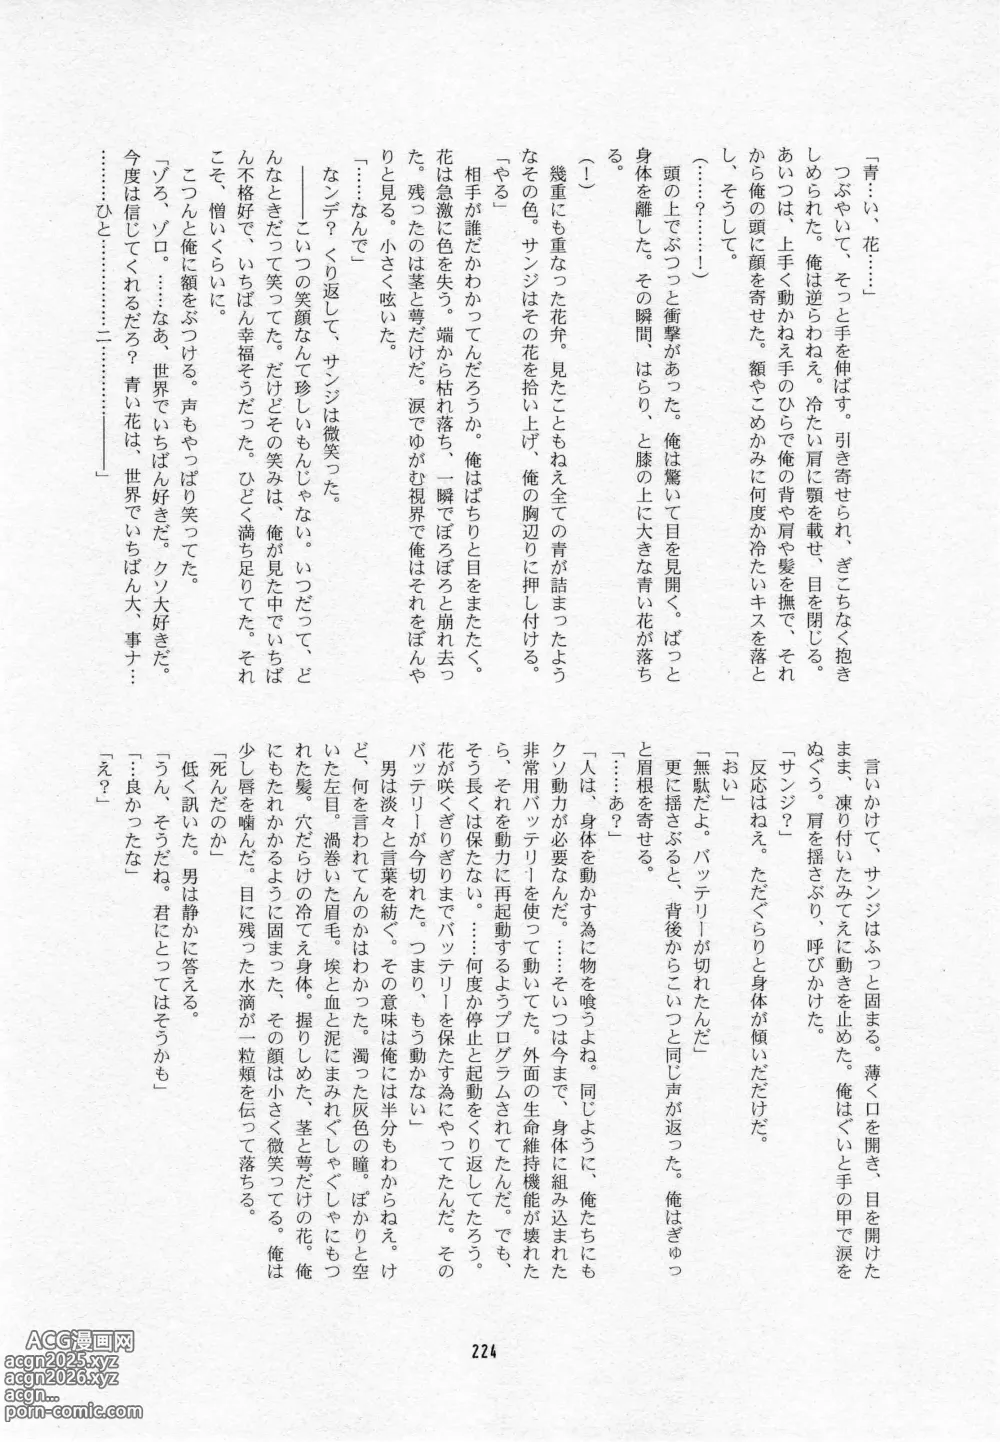 「青…い、花……」
　つぶやいて、そっと手を伸ばす。引き寄せられ、ぎこちなく抱き
しめられた。俺は逆らわねえ。冷たい肩に顎を載せ、目を閉じる。
あいつは、上手く動かねえ手のひらで俺の背や肩や髪を撫で、それ
から俺の頭に顔を寄せた。額やこめかみに何度か冷たいキスを落と
し、そうして。
（……？……！）
　頭の上でぶつっと衝撃があった。俺は驚いて目を見開く。ばっと
身体を離した。その瞬間、はらり、と膝の上に大きな青い花が落ち
る。
（！）
　幾重にも重なった花弁。見たこともねえ全ての青が詰まったよう
なその色。サンジはその花を拾い上げ、俺の胸辺りに押し付ける。
「やる」
　相手が誰だかわかってんだろうか。俺はぱちりと目をまたたく。
花は急激に色を失う。端から枯れ落ち、一瞬でぼろぼろと崩れ去っ
た。残ったのは茎と萼だけだ。涙でゆがむ視界で俺はそれをぼんや
りと見る。小さく呟いた。
「……なんで」
　なンデ？　くり返して、サンジは微笑った。
　――こいつの笑顔なんて珍しいもんじゃない。いつだって、ど
んなときだって笑ってた。だけどその笑みは、俺が見た中でいちば
ん不格好で、いちばん幸福そうだった。ひどく満ち足りてた。それ
こそ、憎いくらいに。
　こつんと俺に額をぶつける。声もやっぱり笑ってた。
「ゾろ、ゾロ。……なあ、世界でいちばん好きだ。クソ大好きだ。
今度は信じてくれるだろ？　青い花は、世界でいちばん大、事ナ…
………ひと………………ニ………………――――」
　言いかけて、サンジはふっと固まる。薄く口を開き、目を開けた
まま、凍り付いたみてえに動きを止めた。俺はぐいと手の甲で涙を
ぬぐう。肩を揺さぶり、呼びかけた。
「サンジ？」
　反応はねえ。ただぐらりと身体が傾いだだけだ。
「おい」
「無駄だよ。バッテリーが切れたんだ」
　更に揺さぶると、背後からこいつと同じ声が返った。俺はぎゅっ
と眉根を寄せる。
「……あ？」
「人は、身体を動かす為に物を喰うよね。同じように、俺たちにも
クソ動力が必要なんだ。……そいつは今まで、身体に組み込まれた
非常用バッテリーを使って動いてた。外面の生命維持機能が壊れた
ら、それを動力に再起動するようプログラムされてたんだ。でも、
そう長くは保たない。……何度か停止と起動をくり返してたろう。
花が咲くぎりぎりまでバッテリーを保たす為にやってたんだ。その
バッテリーが今切れた。つまり、もう動かない」
　男は淡々と言葉を紡ぐ。その意味は俺には半分もわからねえ。け
ど、何を言われてんのかはわかった。濁った灰色の瞳。ぽかりと空
いた左目。渦巻いた眉毛。埃と血と泥にまみれぐしゃぐしゃにもつ
れた髪。穴だらけの冷てえ身体。握りしめた、茎と萼だけの花。俺
にもたれかかるように固まった、その顔は小さく微笑ってる。俺は
少し唇を噛んだ。目に残った水滴が一粒頬を伝って落ちる。
「死んだのか」
　低く訊いた。男は静かに答える。
「うん、そうだね。君にとってはそうかも」
「…良かったな」
「え？」
224
ACG漫画网
acgn2025.xyz
acgn2026.xyz
acgn...
porn-comic.com